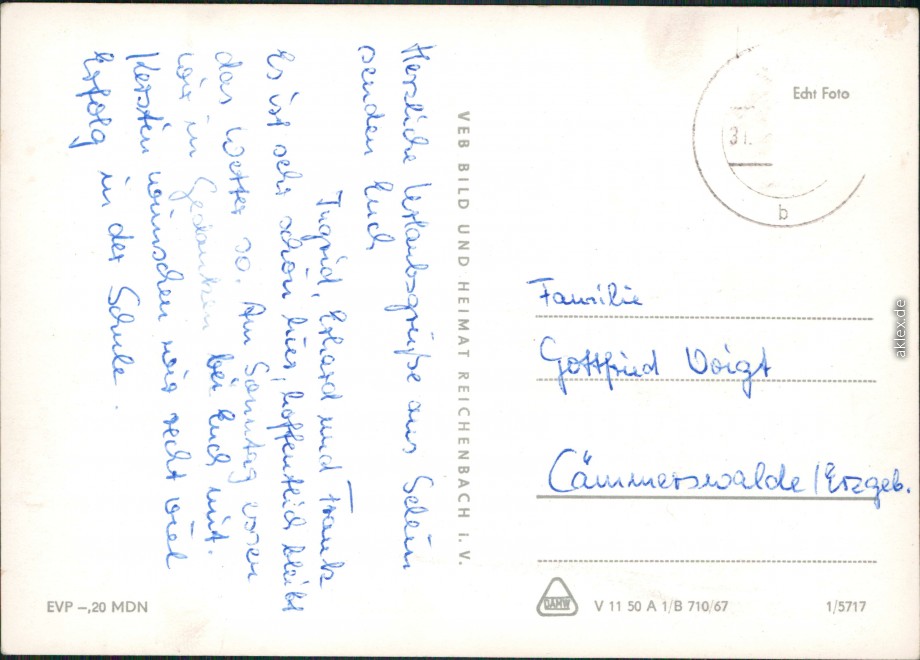 Herzliche Urlaubsgrüße aus Sellin
senden Euch
Ingrid, Erhard und Frank
Es ist sehr schön hier, hoffentlich bleibt
das Wetter so. Am Sonntag waren
wir in Gedanken bei Euch mit.
Kerstin wünschen wir recht viel
Erfolg in der Schule.
VEB BILD UND HEIMAT REICHENBACH I. V.
Echt Foto
31.
b
Familie
Gottfried Voigt
Cämmerswalde / Erzgeb.
EVP –,20 MDN
DAMW
V 11 50 A 1/B 710/67
1/5717
aklex.de